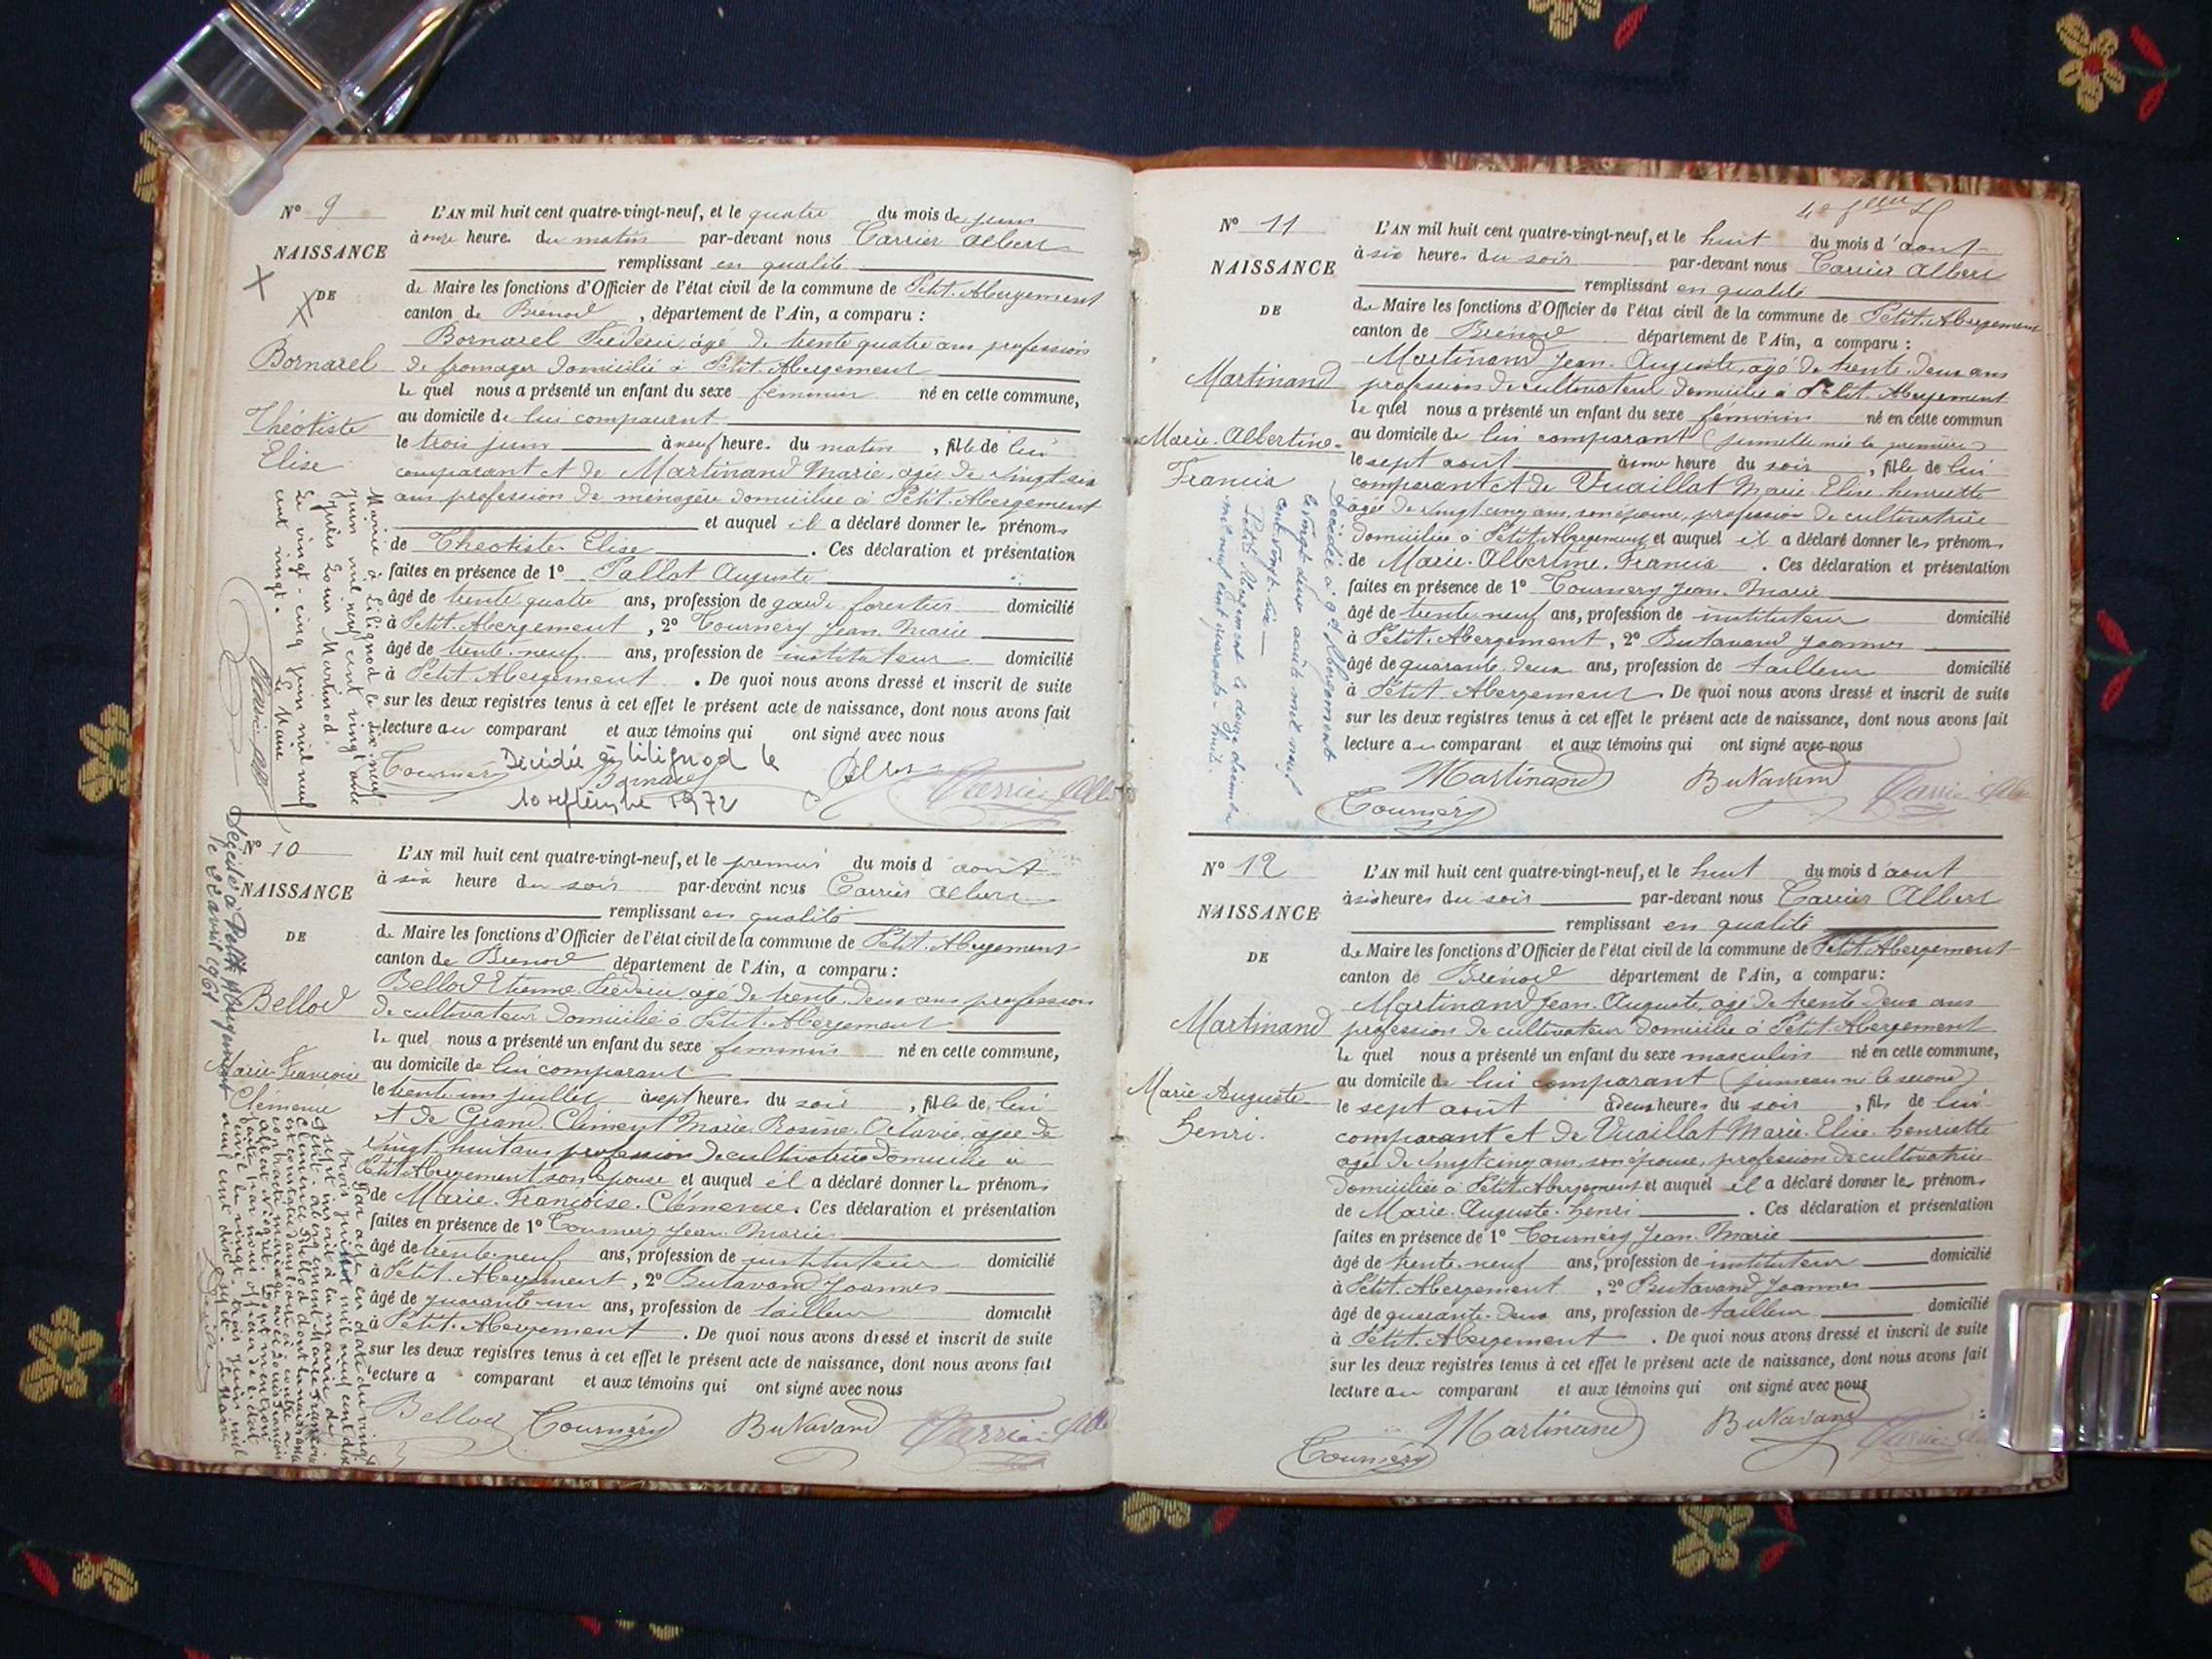 N° 9
NAISSANCE
DE
Bornarel
Théotiste
Elise
L'AN mil huit cent quatre-vingt-neuf, et le quatre du mois de juin
à onze heures du matin par-devant nous Carrier Albert
remplissant en qualité
de Maire les fonctions d'Officier de l'état civil de la commune de Petit-Abergement
canton de Brénod, département de l'Ain, a comparu :
Bornarel Frédéric, âgé de trente quatre ans profession
de fromager domicilié à Petit-Abergement
le quel nous a présenté un enfant du sexe féminin né en cette commune,
au domicile de lui comparant
le trois juin à neuf heures du matin, fille de lui
comparant et de Martinand Marie, agée de vingt six
ans profession de ménagère domiciliée à Petit-Abergement
et auquel il a déclaré donner les prénoms
de Théotiste Elise. Ces déclaration et présentation
faites en présence de 1° Pallot Auguste
âgé de trente quatre ans, profession de garde forestier domicilié
à Petit-Abergement, 2° Tournéry Jean Marie
âgé de trente-neuf ans, profession de instituteur domicilié
à Petit Abergement. De quoi nous avons dressé et inscrit de suite
sur les deux registres tenus à cet effet le présent acte de naissance, dont nous avons fait
lecture au comparant et aux témoins qui ont signé avec nous
Tournéry Bornarel Carrier
Décédée à Lilignod le
10 septembre 1972
Marié à Lilignod le dix neuf
juin mil neuf cent vingt avec
Louis Martinod.
Le vingt-cinq juin mil neuf
cent vingt. Le Maire
N° 10
NAISSANCE
DE
Bellod
Marie-Françoise
Clémence
L'AN mil huit cent quatre-vingt-neuf, et le premier du mois d'août
à six heure du soir par-devant nous Carrier Albert
remplissant en qualité
de Maire les fonctions d'Officier de l'état civil de la commune de Petit-Abergement
canton de Brénod département de l'Ain, a comparu :
Bellod Etienne Frédéric, agé de trente deux ans profession
de cultivateur domicilié à Petit-Abergement
le quel nous a présenté un enfant du sexe féminin né en cette commune,
au domicile de lui comparant
le trente un juillet à sept heures du soir, fille de lui
et de Grand Clément Marie Rosine Octavie, agée de
vingt huit ans profession de cultivatrice domiciliée à
Petit Abergement son épouse et auquel il a déclaré donner les prénoms
de Marie-Françoise-Clémence. Ces déclaration et présentation
faites en présence de 1° Tournéry Jean Marie
âgé de trente-neuf ans, profession de instituteur domicilié
à Petit-Abergement, 2° Butavand Joannes
âgé de quarante-un ans, profession de tailleur domicilié
à Petit-Abergement. De quoi nous avons dressé et inscrit de suite
sur les deux registres tenus à cet effet le présent acte de naissance, dont nous avons fait
lecture a comparant et aux témoins qui ont signé avec nous
Bellod Tournéry Butavand Carrier
Décédé à Petit Abergement
le 22 avril 1961
N° 11
NAISSANCE
DE
Martinand
Marie-Albertine-
Francia
L'AN mil huit cent quatre-vingt-neuf, et le huit du mois d'aout
à six heures du soir par-devant nous Carrier Albert
remplissant en qualité
de Maire les fonctions d'Officier de l'état civil de la commune de Petit-Abergement
canton de Brénod département de l'Ain, a comparu :
Martinand Jean-Auguste, agé de trente-deux ans
profession de cultivateur domicilié à Petit-Abergement
le quel nous a présenté un enfant du sexe féminin né en cette commun
au domicile de lui comparant (jumelle née la première)
le sept aout à une heure du soir, fille de lui
comparant et de Vuaillat Marie-Elise-henriette
âgée de vingt cinq ans, son épouse, profession de cultivatrice
domiciliée à Petit Abergement et auquel il a déclaré donner les prénoms
de Marie-Albertine-Francia. Ces déclaration et présentation
faites en présence de 1° Tournery Jean-Marie
âgé de trente-neuf ans, profession de instituteur domicilié
à Petit-Abergement, 2° Butavand Joannes
âgé de quarante-deux ans, profession de tailleur domicilié
à Petit Abergement. De quoi nous avons dressé et inscrit de suite
sur les deux registres tenus à cet effet le présent acte de naissance, dont nous avons fait
lecture au comparant et aux témoins qui ont signé avec nous
Martinand Butavand Carrier
Tournéry
N° 12
NAISSANCE
DE
Martinand
Marie-Auguste-
henri.
L'AN mil huit cent quatre-vingt-neuf, et le huit du mois d'aout
à six heures du soir par-devant nous Carrier Albert
remplissant en qualité
de Maire les fonctions d'Officier de l'état civil de la commune de Petit-Abergement
canton de Brénod département de l'Ain, a comparu :
Martinand Jean-Auguste, agé de trente deux ans
profession de cultivateur domicilié à Petit-Abergement
le quel nous a présenté un enfant du sexe masculin né en cette commune,
au domicile de lui comparant (jumeau né le second)
le sept août à deux heures du soir, fils de lui
comparant et de Vuaillat Marie-Elise-henriette
agée de vingt cinq ans, son épouse, profession de cultivatrice
domiciliée à Petit-Abergement et auquel il a déclaré donner les prénoms
de Marie-Auguste-henri. Ces déclaration et présentation
faites en présence de 1° Tournéry Jean-Marie
âgé de trente-neuf ans, profession de instituteur domicilié
à Petit-Abergement, 2° Butavand Joannes
âgé de quarante-deux ans, profession de tailleur domicilié
à Petit-Abergement. De quoi nous avons dressé et inscrit de suite
sur les deux registres tenus à cet effet le présent acte de naissance, dont nous avons fait
lecture au comparant et aux témoins qui ont signé avec nous
Martinand Butavand Carrier
Tournéry